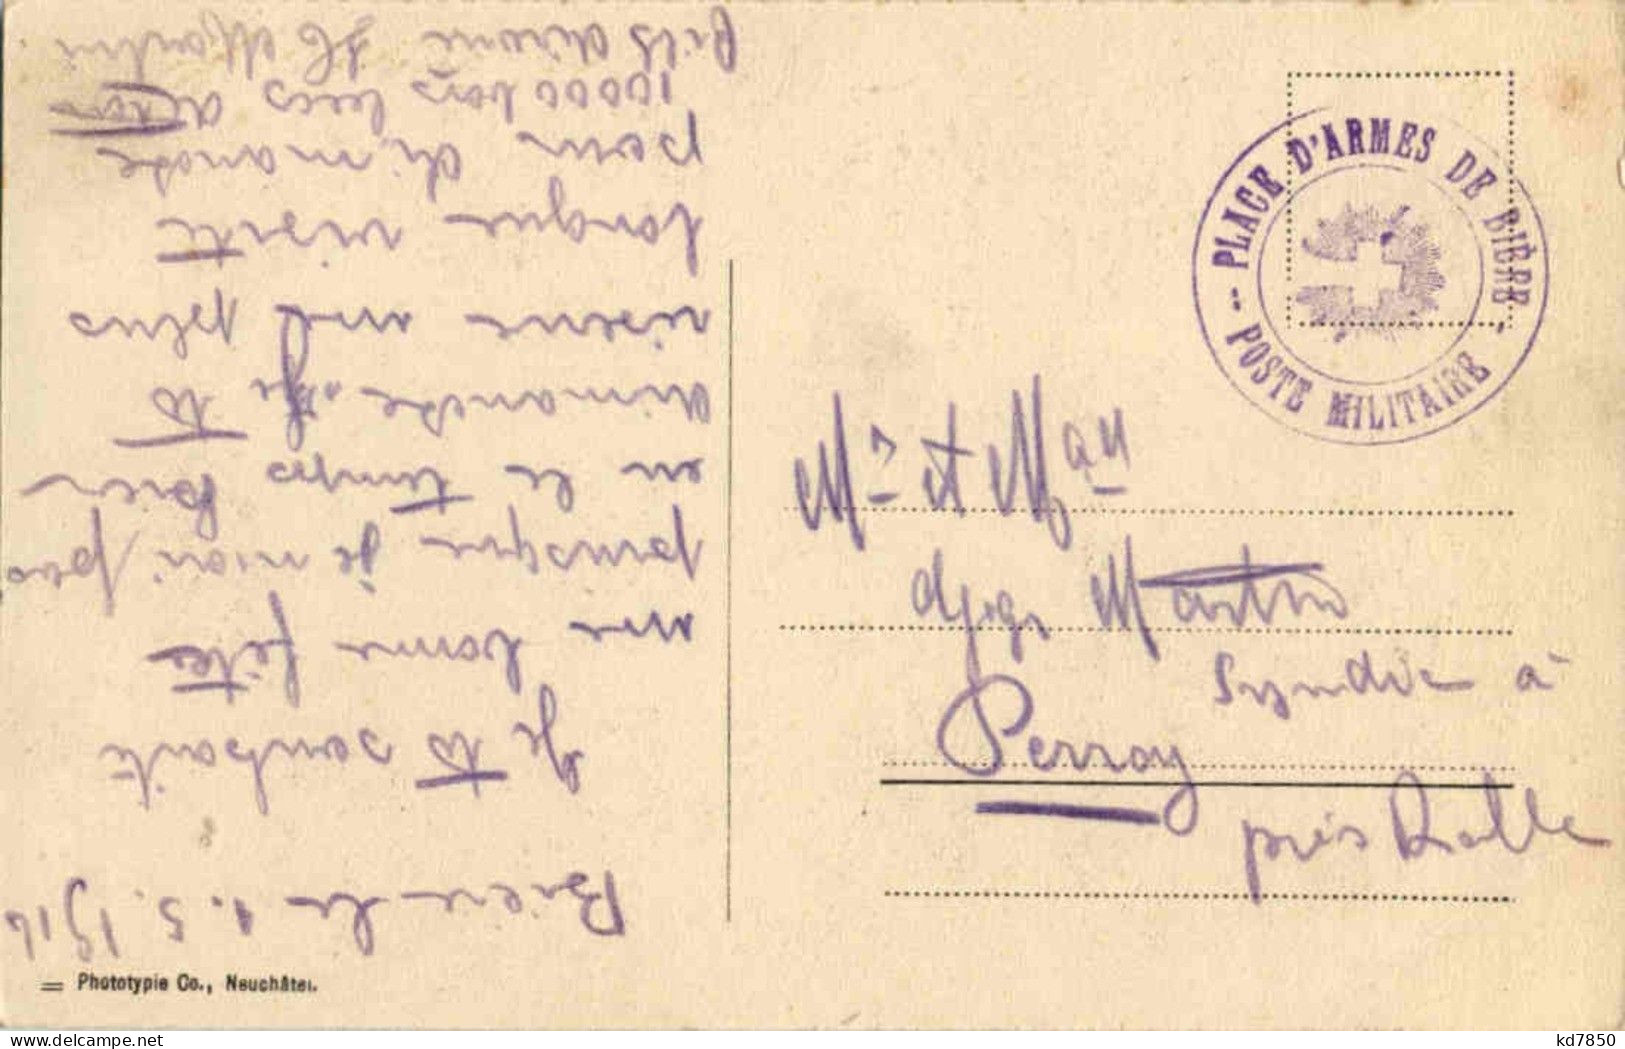 Bière le 1. 5. 1916
Je te souhaite
une bonne fêtes
puisque je niai pas
en le temps Bien
dimanche Je te
visene und plus
longue visite
pour dimanche
10000 bons becs de ton
fils Martin
PLACE D'ARMES DE BIÈRE
POSTE MILITAIRE
Mr et M
Martin
Syndic à
Perroy
près Rolle
= Phototypie Co., Neuchâtel.
kd7850